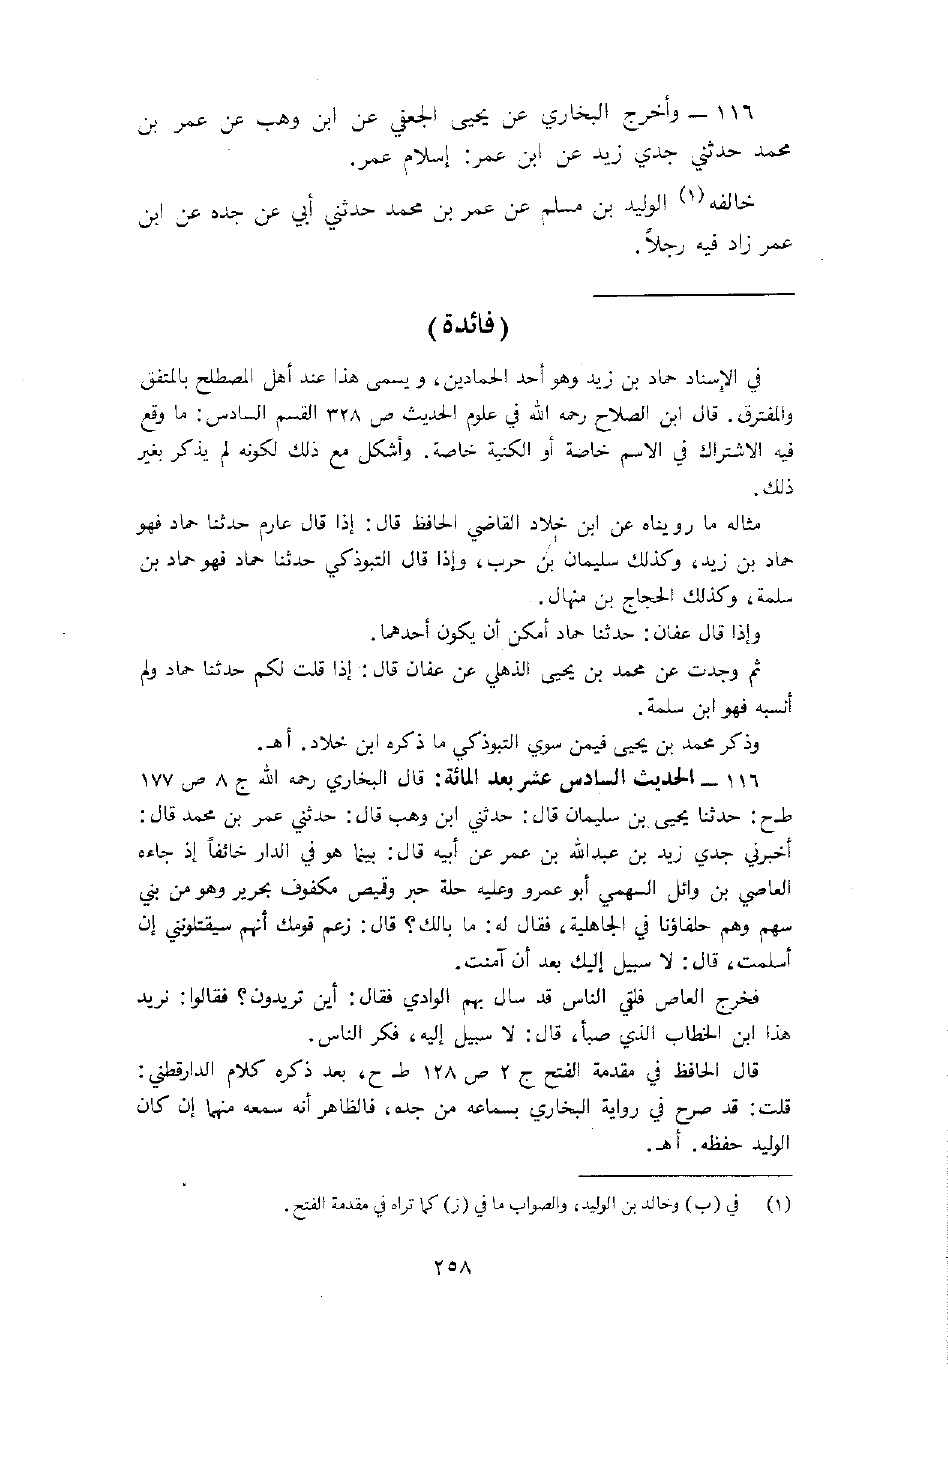 ١١٦ — وأخرج البخاري عن يحيى الجعفي عن ابن وهب عن عمر بن
محمد حدثني جدي زيد عن ابن عمر: إسلام عمر.
خالفه (١) الوليد بن مسلم عن عمر بن محمد حدثني أبي عن جده عن ابن
عمر زاد فيه رجلاً.
(فائدة)
في الإسناد حماد بن زيد وهو أحد الحمادين، ويسمى هذا عند أهل المصطلح بالمتفق
والمفترق. قال ابن الصلاح رحمه الله في علوم الحديث ص ٣٢٨ القسم السادس: ما وقع
فيه الاشتراك في الاسم خاصة أو الكنية خاصة. وأشكل مع ذلك لكونه لم يذكر بغير
ذلك.
مثاله ما رويناه عن ابن خلاد القاضي الحافظ قال: إذا قال عارم حدثنا حماد فهو
حماد بن زيد، وكذلك سليمان بن حرب، وإذا قال التبوذكي حدثنا حماد فهو حماد بن
سلمة، وكذلك الحجاج بن منهال.
وإذا قال عفان: حدثنا حماد أمكن أن يكون أحدهما.
ثم وجدت عن محمد بن يحيى الذهلي عن عفان قال: إذا قلت لكم حدثنا حماد ولم
أنسبه فهو ابن سلمة.
وذكر محمد بن يحيى فيمن سوي التبوذكي ما ذكره ابن خلاد. أهـ.
١١٦ — الحديث السادس عشر بعد المائة: قال البخاري رحمه الله ج ٨ ص ١٧٧
ط ح: حدثنا يحيى بن سليمان قال: حدثني ابن وهب قال: حدثني عمر بن محمد قال:
أخبرني جدي زيد بن عبدالله بن عمر عن أبيه قال: بينما هو في الدار خائفاً إذ جاءه
العاصي بن وائل السهمي أبو عمرو وعليه حلة حبر وقميص مكفوف بحرير وهو من بني
سهم وهم حلفاؤنا في الجاهلية، فقال له: ما بالك؟ قال: زعم قومك أنهم سيقتلونني إن
أسلمت، قال: لا سبيل إليك بعد أن آمنت.
فخرج العاص فلقي الناس قد سال بهم الوادي فقال: أين تريدون؟ فقالوا: نريد
هذا ابن الخطاب الذي صبأ، قال: لا سبيل إليه، فكر الناس.
قال الحافظ في مقدمة الفتح ج ٢ ص ١٢٨ ط ح، بعد ذكره كلام الدارقطني:
قلت: قد صرح في رواية البخاري بسماعه من جده، فالظاهر أنه سمعه منهما إن كان
الوليد حفظه. أهـ.
(١) في (ب) وخالد بن الوليد، والصواب ما في (ز) كما تراه في مقدمة الفتح.
٢٥٨